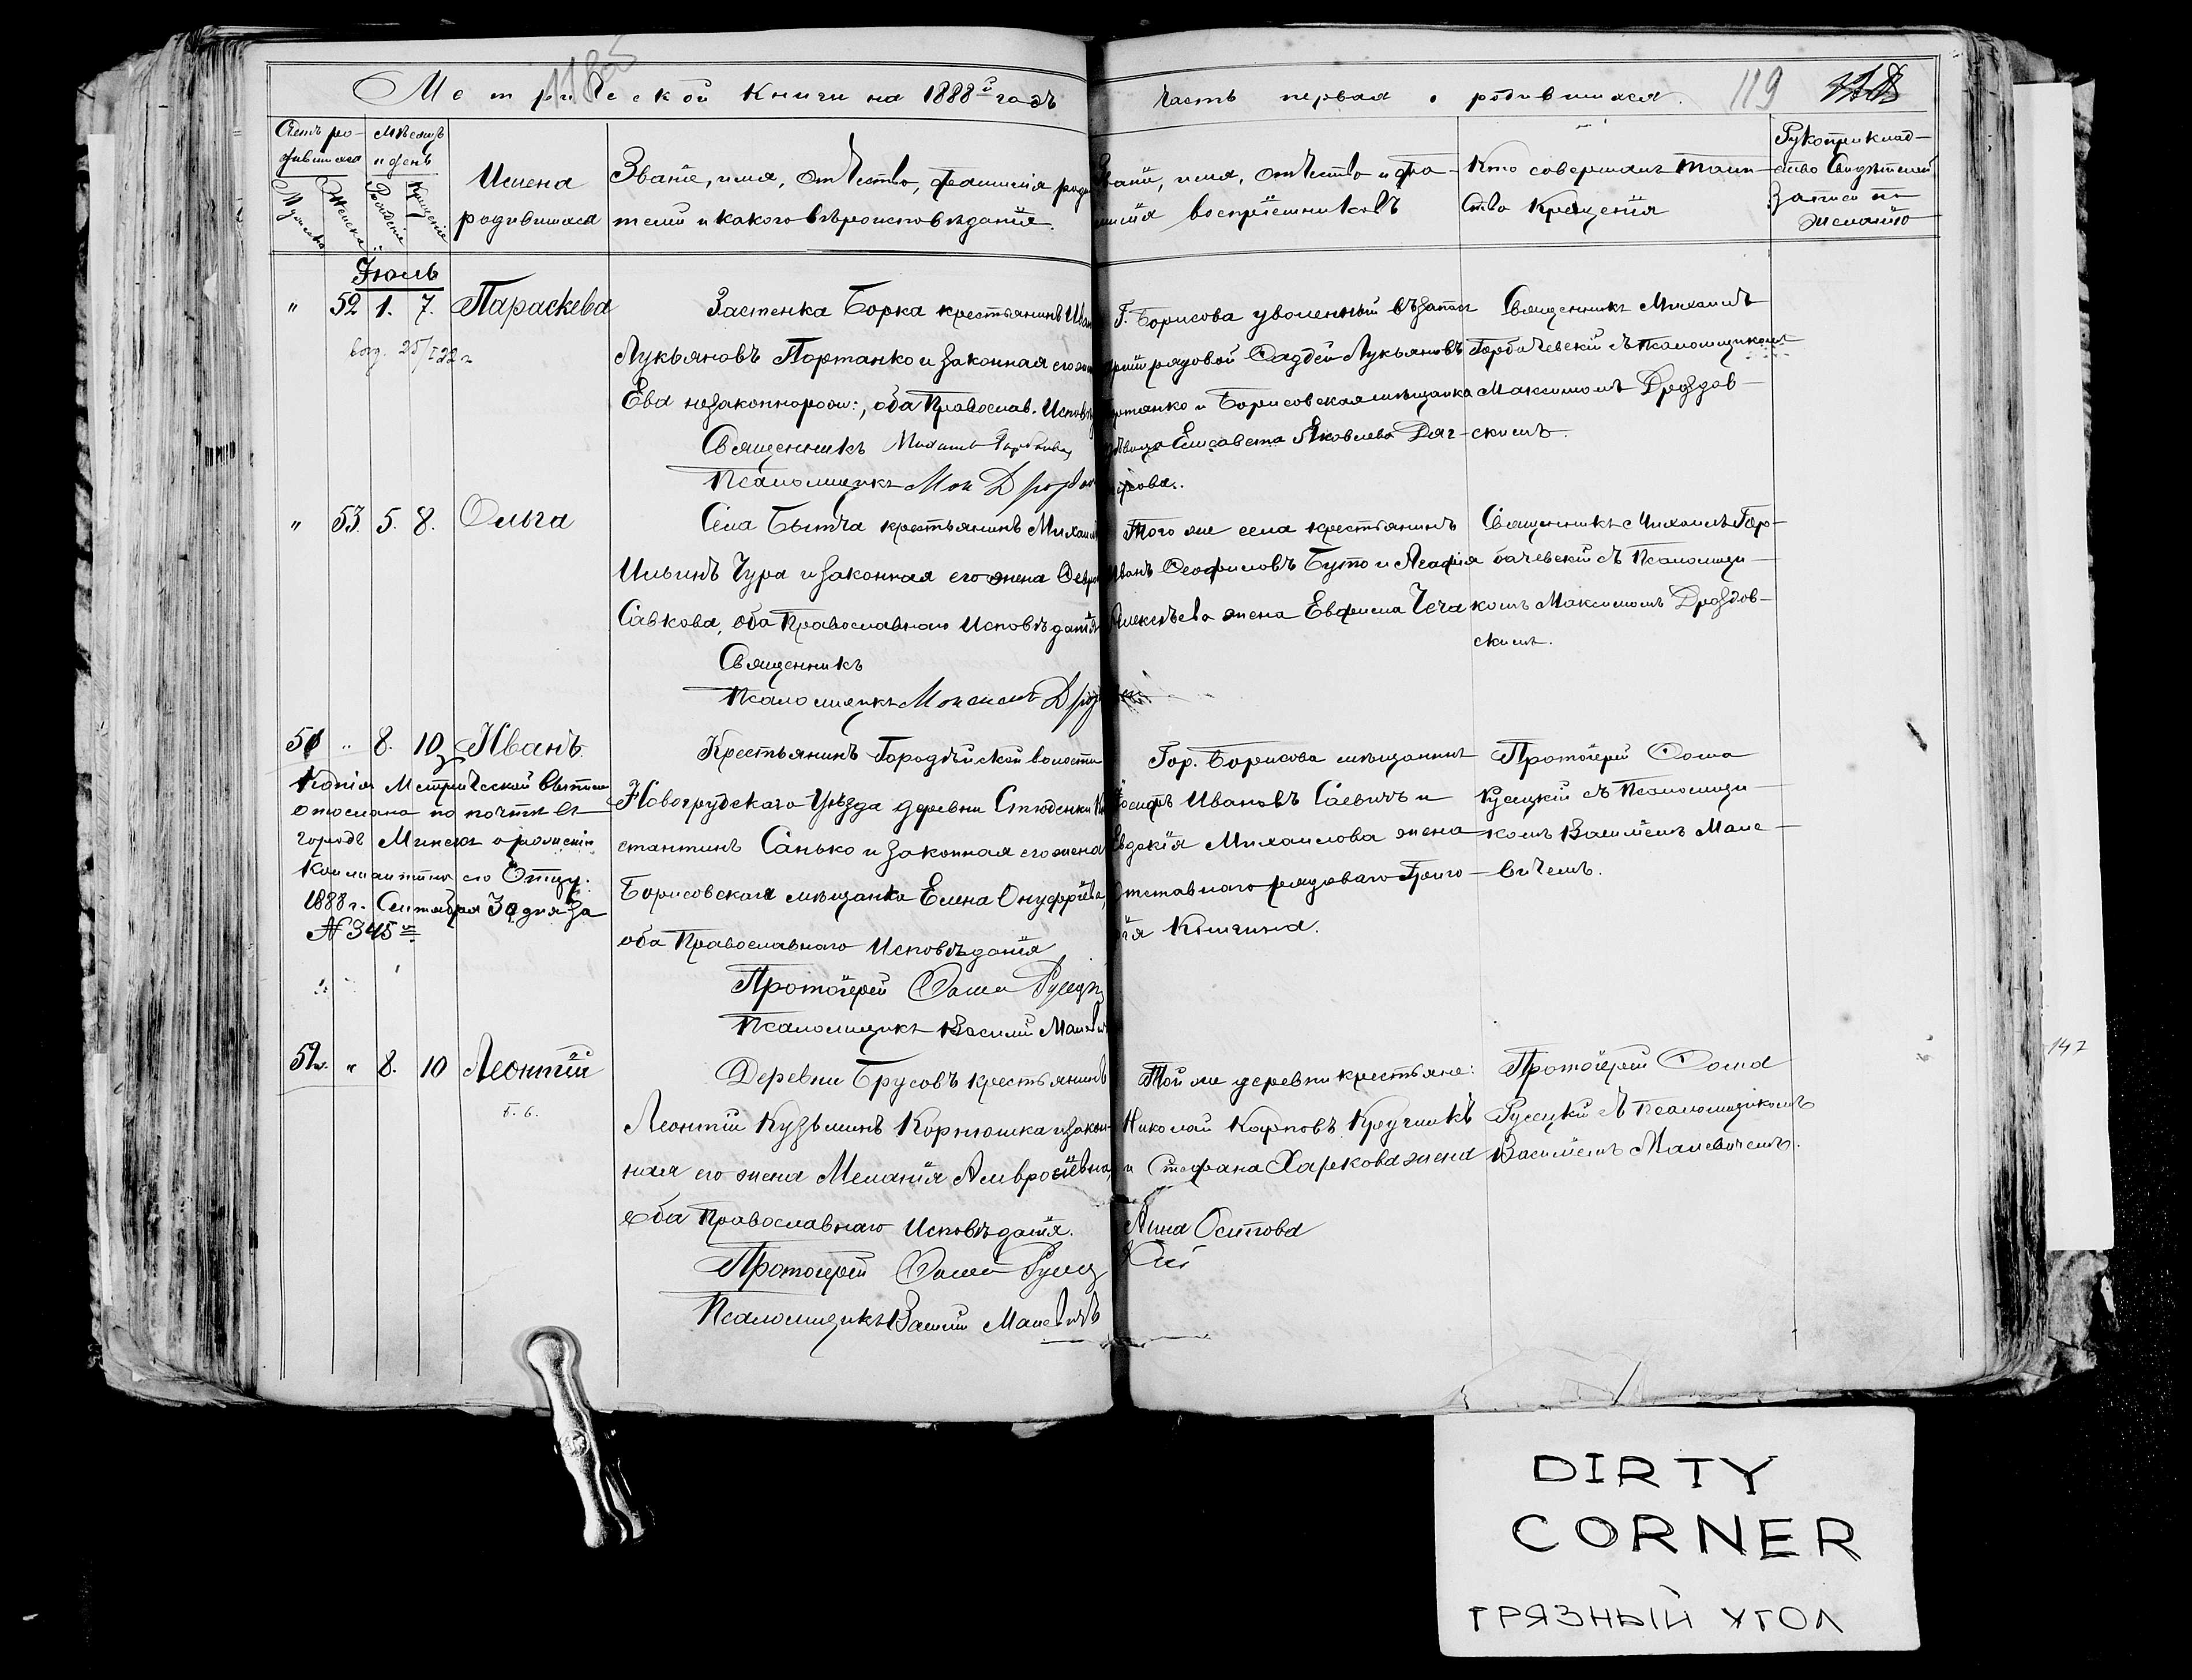 Метрической книги на 1888й годъ
часть первая о родившихся.
119
Счетъ ро-
дившихся
Мѣсяцъ
и день
Мужеска
Женска
Рожденіе
Крещеніе
Имена
родившихся
Званіе, имя, отчество, фамилія роди
тели и какого вѣроисповѣданія.
Званіе, имя, отчество и фа-
милія воспріемниковъ
Кто совершалъ таин-
ство крещенія
Рукоприклад-
ство свидѣтелей
записи по
желанію
Іюль
" 52 1. 7. Параскева
Застенка Борка крестьянинъ Иван
Лукьяновъ Портянко и законная его жен
Ева незаконнорож:, оба Православ. Исповѣ
Священникъ Михаилъ Горбачевс
Псаломщикъ Мак Дроздов
Г. Борисова уволенный въ запас
арміи рядовой Фаддей Лукьяновъ
Портянко и Борисовская мѣщанка
дѣвица Елисавета Яковлева Дяг-
Священникъ Михаилъ
Горбачевскій съ Псаломщикомъ
Максимомъ Дроздов-
скимъ.
" 53. 5. 8. Ольга
Села Бытча крестьянинъ Михаил
Ильинъ Чура и законная его жена Февро
Савкова, оба Православнаго Исповѣданія
Священникъ
Псаломщикъ Максимъ Дрозд
Того же села крестьянинъ
Иванъ Феофиловъ Буто и Агафія
Алексѣева жена Евфима Чеча
Священникъ Михаилъ Гор-
бачевскій съ Псаломщи-
комъ Максимомъ Дроздов-
скимъ.
" 8. 10 Иванъ.
Копія Метрической выписи
отослана по почтѣ въ
городъ Минскъ о рожденіи
его Отцу.
1888 г. Сентября 30 дня за
№ 345
Крестьянинъ Городѣйской волости
Новогрудскаго Уѣзда деревни Стюденки Кон
стантинъ Санько и законная его жена
Борисовская мѣщанка Елена Онуфріева,
оба Православнаго Исповѣданія
Протоіерей Фома Русецк
Псаломщикъ Василій Малевич
Гор. Борисова мѣщанинъ
Іосифъ Ивановъ Саевичъ и
Евдокія Михаилова жена
отставнаго рядоваго Григо-
рія Кличина.
Протоіерей Фома
Русецкій съ Псаломщи-
комъ Василіемъ Мале-
вичемъ.
" 8. 10 Леонтій
Деревни Брусовъ крестьянинъ
Леонтій Кузьминъ Корнюшка и закон-
ная его жена Меланія Амвросіевна,
оба Православнаго Исповѣданія.
Протоіерей Фома Русец
Псаломщикъ Василій Малевичъ
Той же деревни крестьяне:
Николай Карповъ Кручикъ
и Стефана Харкова жена
Анна Осипова
Протоіерей Фома
Русецкій съ Псаломщикомъ
Василіемъ Малевичемъ.
147
DIRTY
CORNER
ГРЯЗНЫЙ УГОЛ